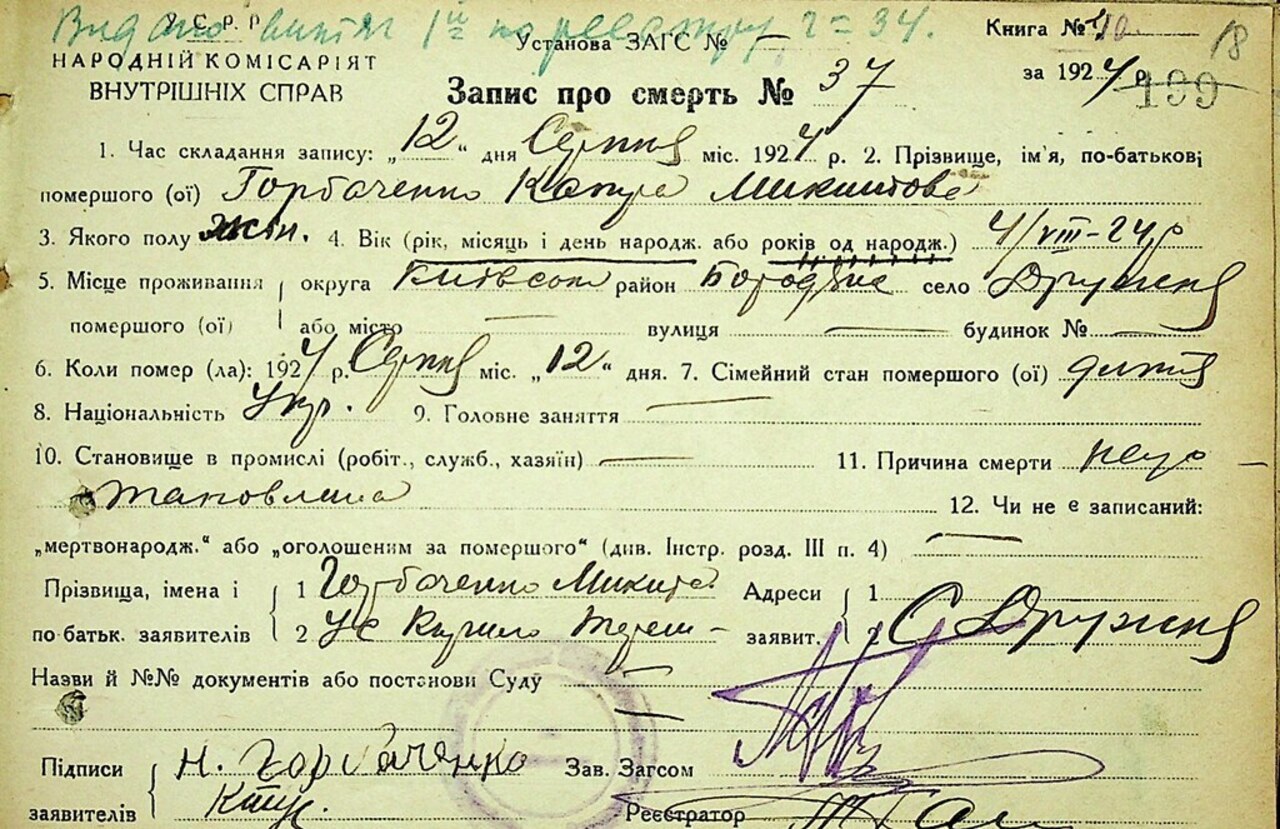 Видано витяг 1й по реєстру 2=34.
У С Р Р
НАРОДНІЙ КОМІСАРІЯТ
ВНУТРІШНІХ СПРАВ
Установа ЗАГС №
Книга № 10
18
за 1924 р.
199
Запис про смерть № 37
1. Час складання запису: „12“ дня Серпня міс. 1924 р. 2. Прізвище, ім'я, по-батькові
помершого (ої) Горбаченко Микитова
3. Якого полу жін. 4. Вік (рік, місяць і день народж. або років од народж.) 4/VIII-24 р
5. Місце проживання округа Київськ район Бородянс село Дружня
помершого (ої) або місто — вулиця — будинок № —
6. Коли помер (ла): 1924 р. Серпня міс. „12“ дня. 7. Сімейний стан помершого (ої) дитя
8. Національність Укр. 9. Головне заняття —
10. Становище в промислі (робіт., служб., хазяїн) — 11. Причина смерти
12. Чи не є записаний:
„мертвонародж.“ або „оголошеним за помершого“ (див. Інстр. розд. III п. 4) —
Прізвища, імена і 1 Горбаченко Микита Адреси 1
по батьк. заявителів 2 Ус Кирило заявит. 2 С Дружня
Назви й №№ документів або постанови Суду —
Підписи Н. Горбаченко Зав. Загсом
заявителів Реєстратор